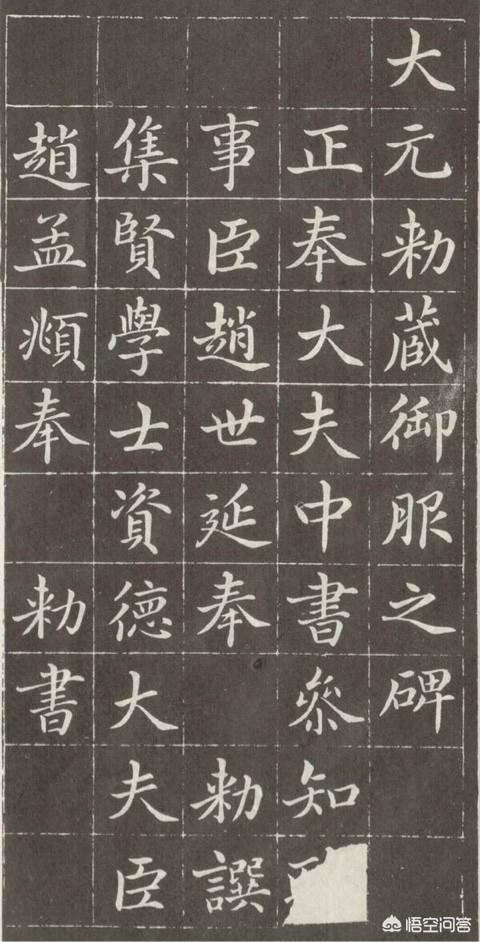 大元勅蔵御服之碑
正奉大夫中書叅知
事臣趙世延奉勅譔
集賢學士資德大夫臣
趙孟頫奉勅書
悟空问答